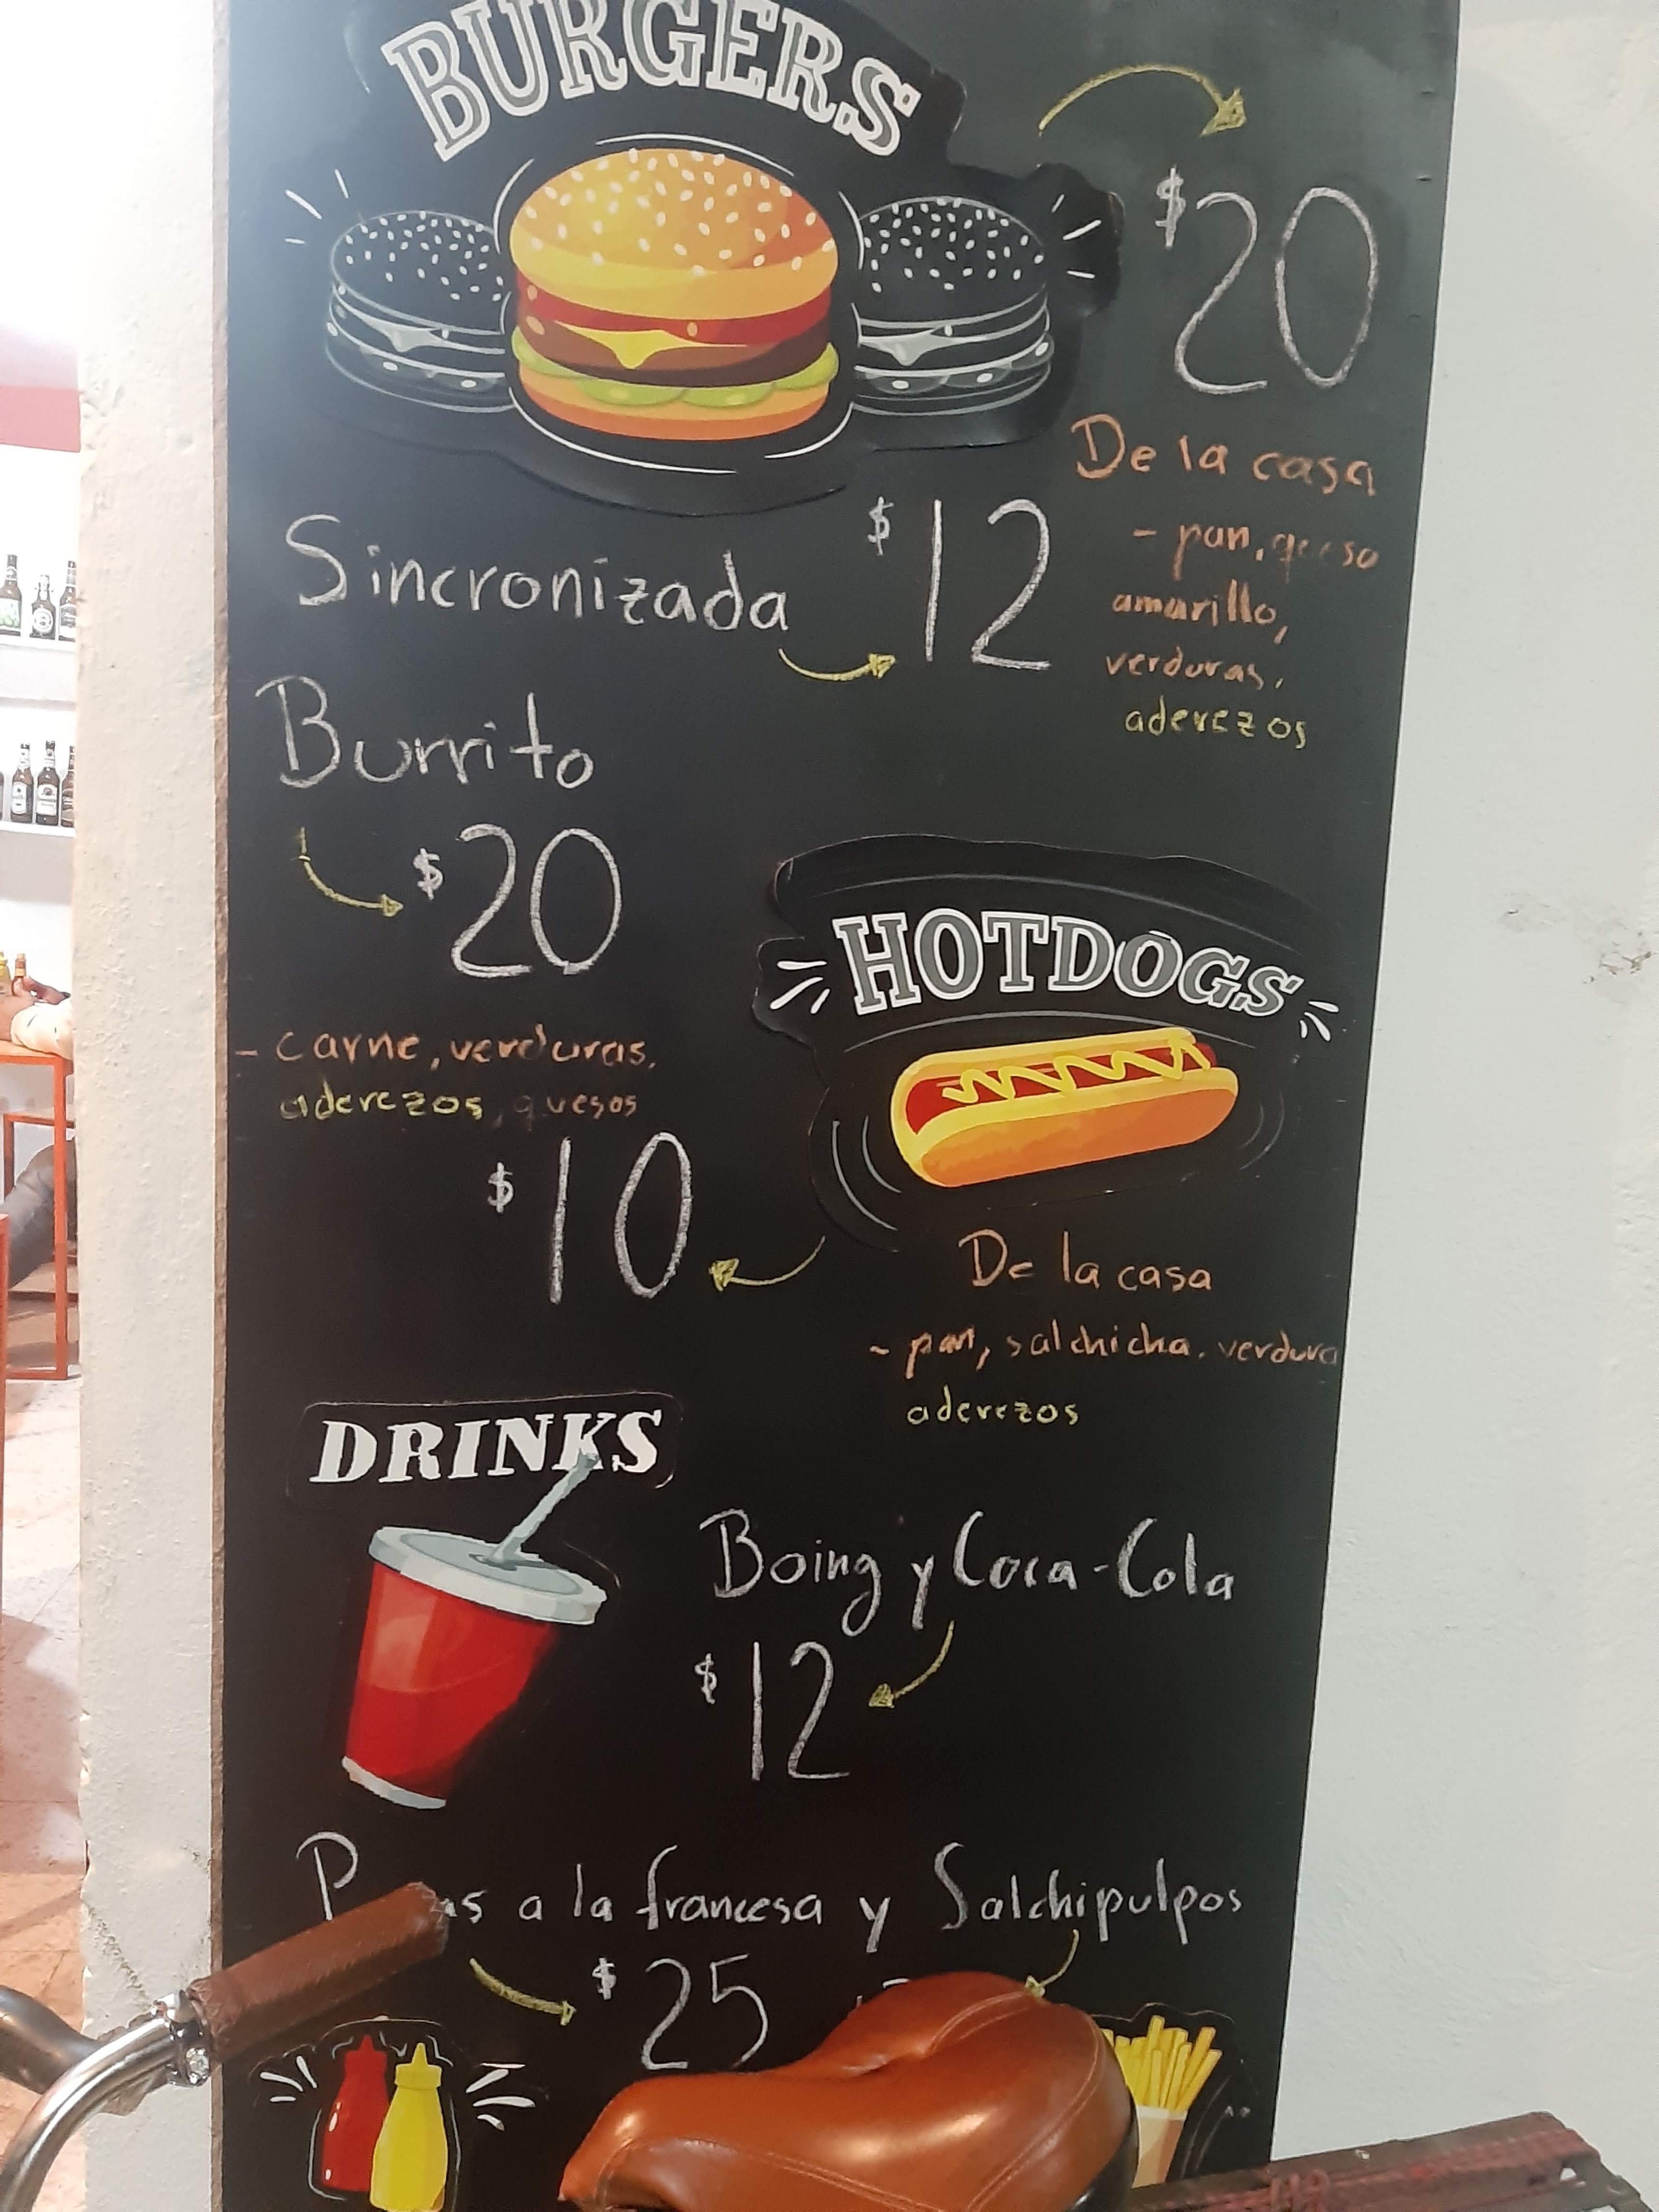 BURGERS
$20
De la casa
- pan, queso
amarillo,
verduras,
aderezos
Sincronizada $12
Burrito
$20
- carne, verduras,
aderezos, quesos
HOTDOGS
$10
De la casa
- pan, salchicha, verdura
aderezos
DRINKS
Boing y Coca-Cola
$12
a la francesa y Salchipulpos
$25